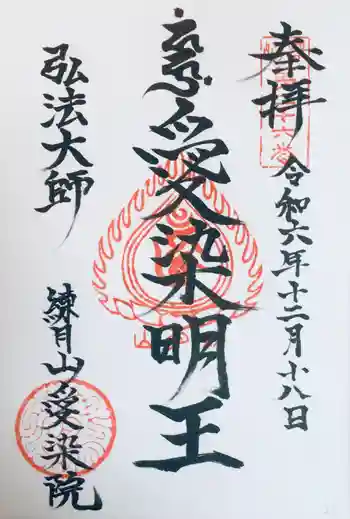 奉拝
令和六年十二月廿八日
愛染明王
弘法大師
練月山愛染院